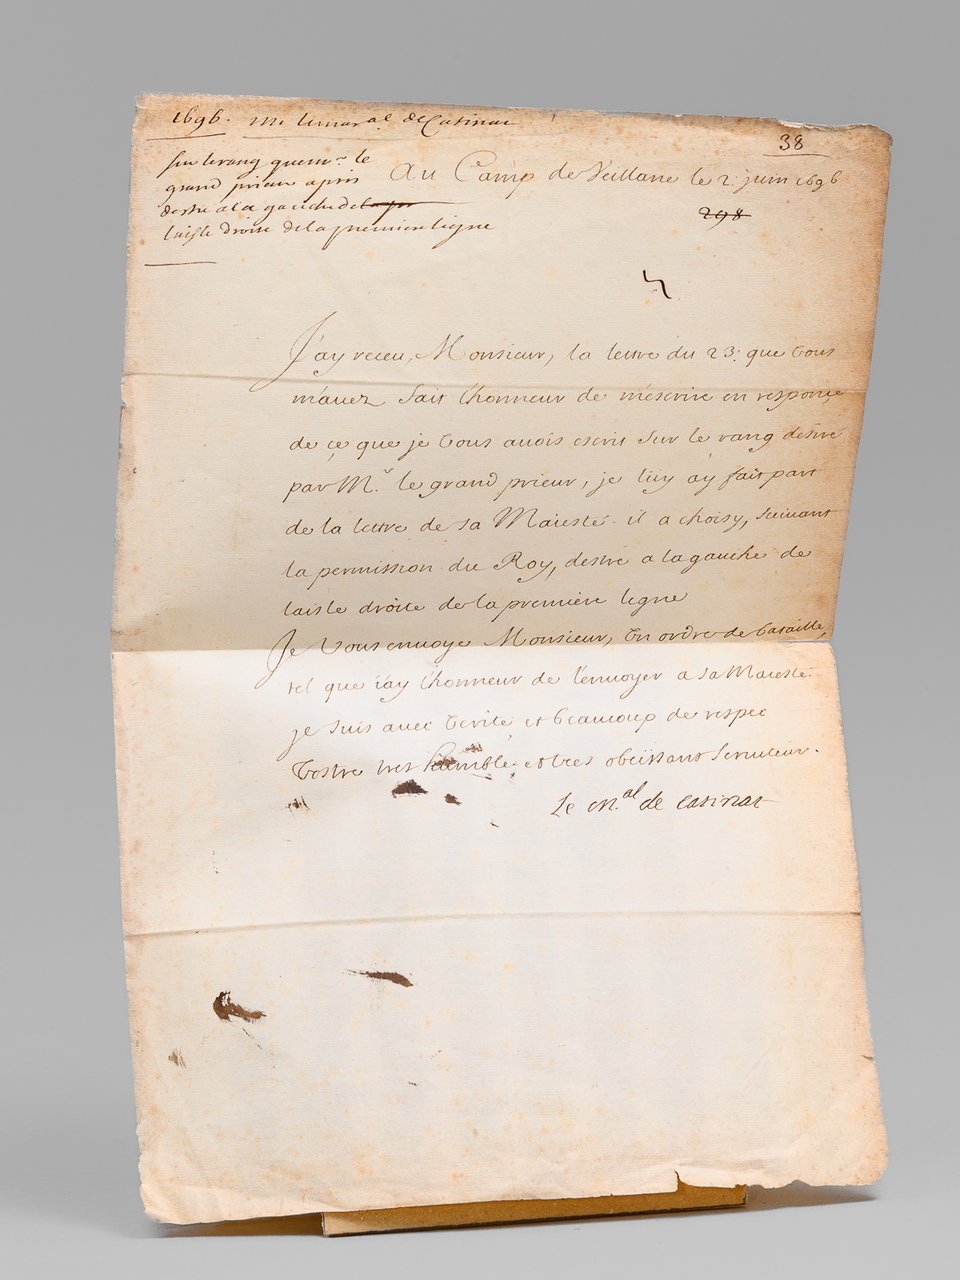 1696. M. le mar.al de Catinat
38
sur le rang que M.r le
grand prieur a pris
destre a la gauche de
laisle droite de la premiere ligne
Au Camp de Veillane le 2. juin 1696
298
J'ay receu, Monsieur, la lettre du 23. que vous
m'avez fait l'honneur de m'escrire en response
de ce que je vous avois escrit sur le rang desiré
par M.r le grand prieur, je luy ay fait part
de la lettre de sa Maiesté. il a choisy, suivant
la permission du Roy, destre a la gauche de
laisle droite de la premiere ligne
Je vous envoye Monsieur, un ordre de bataille,
tel que j'ay l'honneur de l'envoyer a sa Maiesté.
je suis avec verité et beaucoup de respec
Vostre tres humble et tres obeissant serviteur.
Le M.al de Catinat